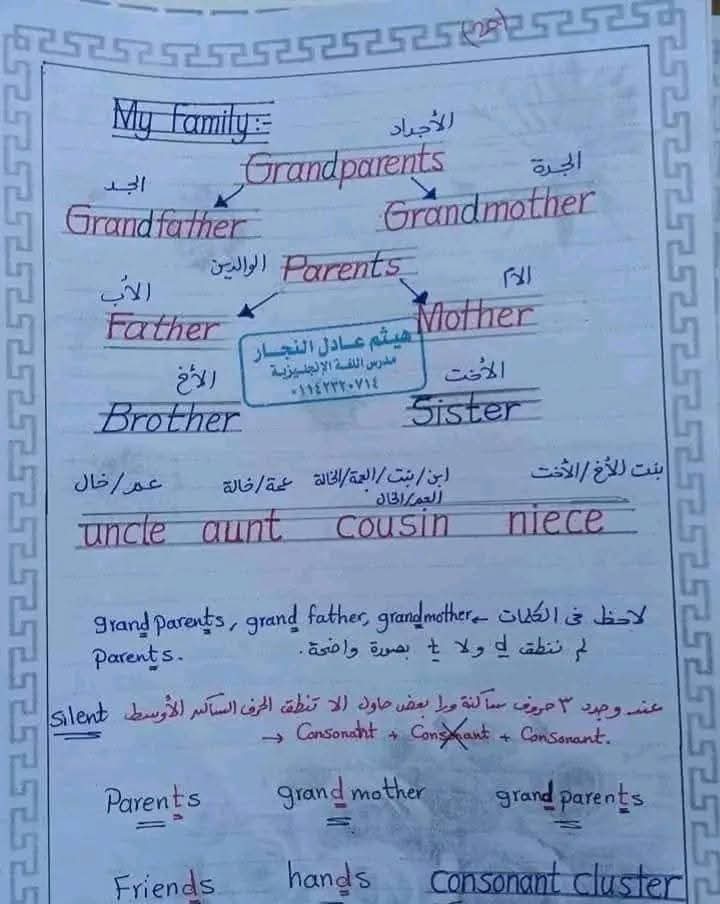 My family:=
الأجداد
Grandparents
الجد الجدة
Grandfather Grandmother
الوالدين Parents
الأب الأم
Father Mother
هيثم عادل النجار
مدرس اللغة الإنجليزية
٠١١٤٢٣٢٠٧١٤
الأخ الأخت
Brother Sister
عم/خال عمة/خالة ابن/بنت/العمة/الخالة بنت الأخ/الأخت
العم/الخال
uncle aunt cousin niece
لاحظ فى الكلمات ← grandparents, grand father, grandmother
parents. لم ننطق d ولا t بصورة واضحة.
silent عند وجود ٣ حروف ساكنة ورا بعض حاول الا تنطق الحرف الساكن الأوسط
→ Consonant + Consonant + Consonant.
Parents grand mother grand parents
Friends hands consonant cluster